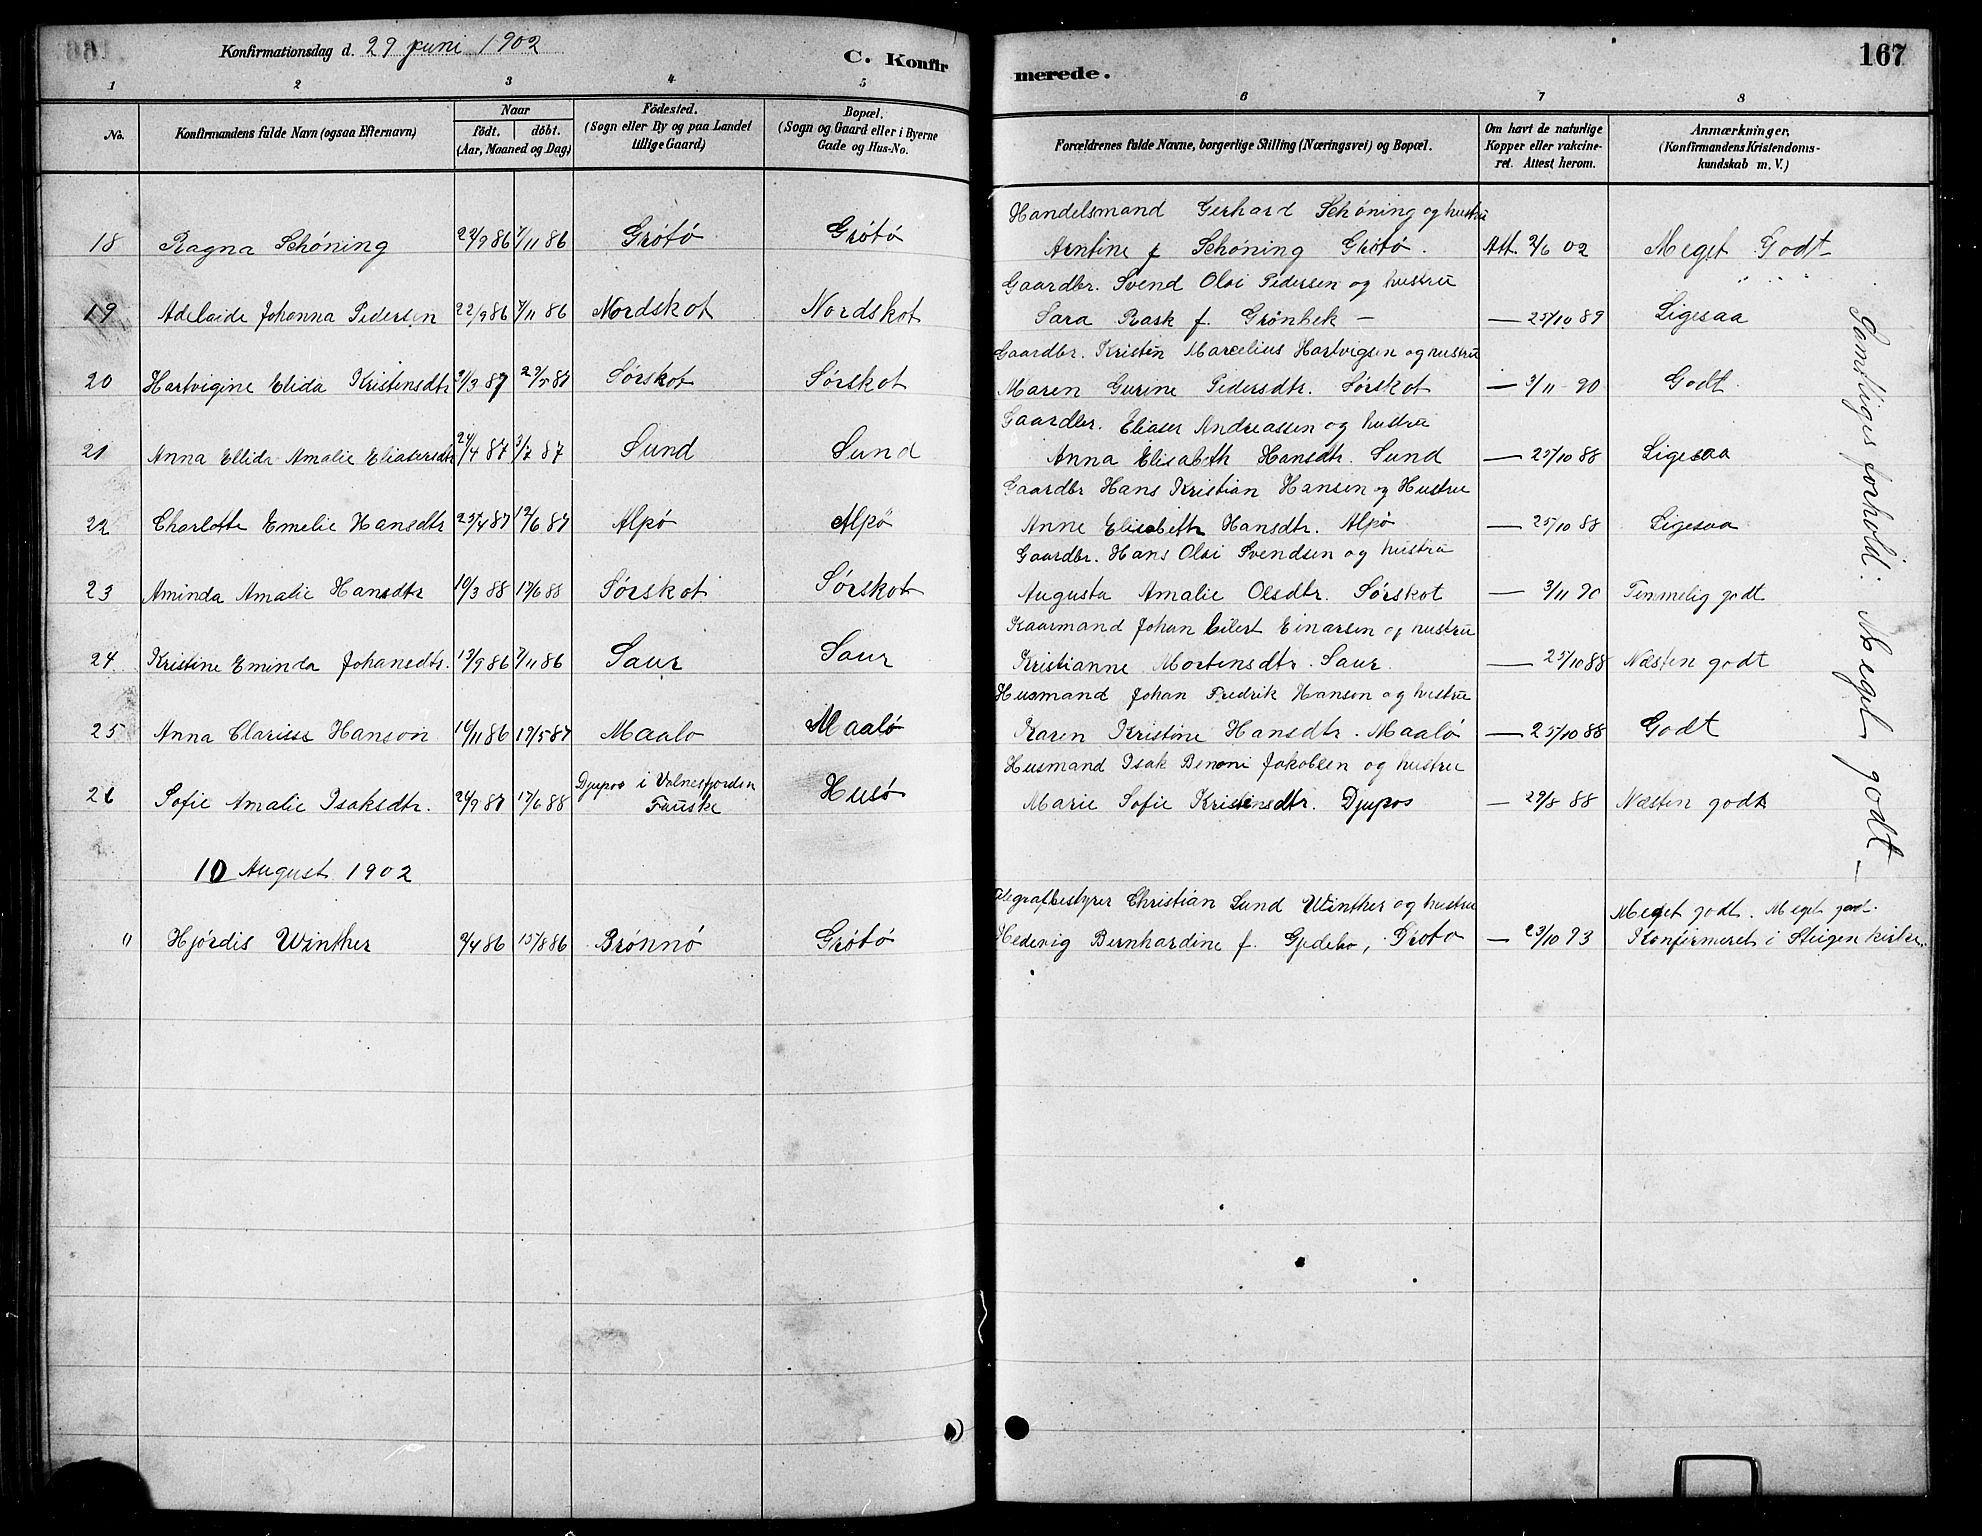 Konfirmationsdag d. 29 juni 1902
C. Konfirmerede.
167
1 2 3 4 5 6 7 8
No.
Konfirmandens fulde Navn (ogsaa Efternavn)
Naar
födt. döbt.
(Aar, Maaned og Dag)
Födested.
(Sogn eller By og paa Landet
tillige Gaard)
Bopæl.
(Sogn og Gaard eller i Byerne
Gade og Hus-No.
Forældrenes fulde Navne, borgerlige Stilling (Næringsvei) og Bopæl.
Om havt de naturlige
Kopper eller vakcine-
ret. Attest herom.
Anmærkninger.
(Konfirmandens Kristendoms-
kundskab m. V.)
Handelsmand Gerhard Schöning og hustru
18 Ragna Schöning 22/9 86 7/11 86 Grötö Grötö Arntine f Schöning Grötö. Att. 2/6 02 Meget Godt
Gaardbr. Svend Olai Pedersen og hustru
19 Adelaide Johanna Pedersen 22/9 86 7/11 86 Nordskot Nordskot Sara Rask f. Grönbek — — 25/10 89 Ligesaa
Gaardbr. Kristen Marcelius Hartvigsen og hustru
20 Hartvigine Elida Kristensdtr 21/3 87 29/5 87 Sörskot Sörskot Maren Gurine Pedersdtr. Sörskot — 3/11 90 Godt
Gaardbr. Eliaser Andreassen og hustru
21 Anna Ellida Amalie Eliasersdtr 24/4 87 3/7 87 Sund Sund Anna Elisabeth Hansdtr. Sund — 25/10 88 Ligesaa
Gaardbr Hans Kristian Hansen og Hustru
22 Charlotte Emelie Hansdtr 25/4 87 12/6 87 Alpö Alpö Anne Elisabeth Hansdtr. Alpö — 25/10 88 Ligesaa
Gaardbr. Hans Olai Svendsen og hustru
23 Aminda Amalie Hansdtr 10/3 88 17/6 88 Sörskot Sörskot Augusta Amalie Olsdtr. Sörskot — 3/11 90 Temmelig godt
Kaarmand Johan Eilert Einarsen og hustru
24 Kristine Eminda Johansdtr. 13/9 86 7/11 86 Saur Saur Kristianne Mortensdtr. Saur. — 25/10 88 Næsten godt
Husmand Johan Fredrik Hansen og hustru
25 Anna Clarisse Hanson 16/11 86 19/5 87 Maalö Maalö Karen Kristine Hansdtr. Maalö — 25/10 88 Godt
Husmand Isak Benoni Jakobsen og hustru
26 Sofie Amalie Isaksdtr. 24/9 87 17/6 88 Djupos i Valnesfjorden Fauske Husö Marie Sofie Kristensdtr. Djupos — 29/8 88 Næsten godt
10 August 1902
Telegrafbestyrer Christian Lund Winther og hustru Meget godt. Meget god.
" Hjördis Winther 2/4 86 15/8 86 Brönnö Grötö Hedevig Bernhardine f. Gjedebo, Grotö — 23/10 93 Konfirmeret i Steigen kirke.
Samtliges forhold: Meget godt